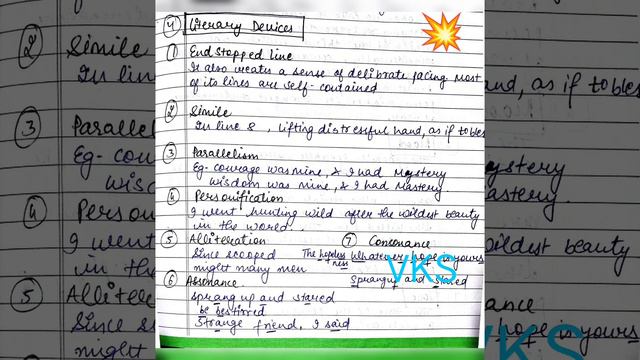 ④ Literary Devices
① End Stopped line
It also creates a sense of delibrate pacing Most
of its lines are self-contained
② Simile
In line 8, lifting distressful hand, as if to bles
③ Parallelism
Eg- courage was mine, & I had Mystery
wisdom was mine, & I had Mastery.
④ Personification
I went hunting wild after the wildest beauty
in the world..
⑤ Alliteration
Since scooped
might many men
⑥ Assonance
sprang up and stared
be bestirred
Strange friend, I said
⑦ Consonance
The hopeless
ness whatever hope is yours
Sprang up and stared
VKS
② Simile
In lin
③ Parallel
Eg- cour
wisc
④ Person
I went
in the
⑤ Allite
Since s
might
hand, as if to bles
ystery
astery.
wildest beauty
nance
hope is yours
VKS